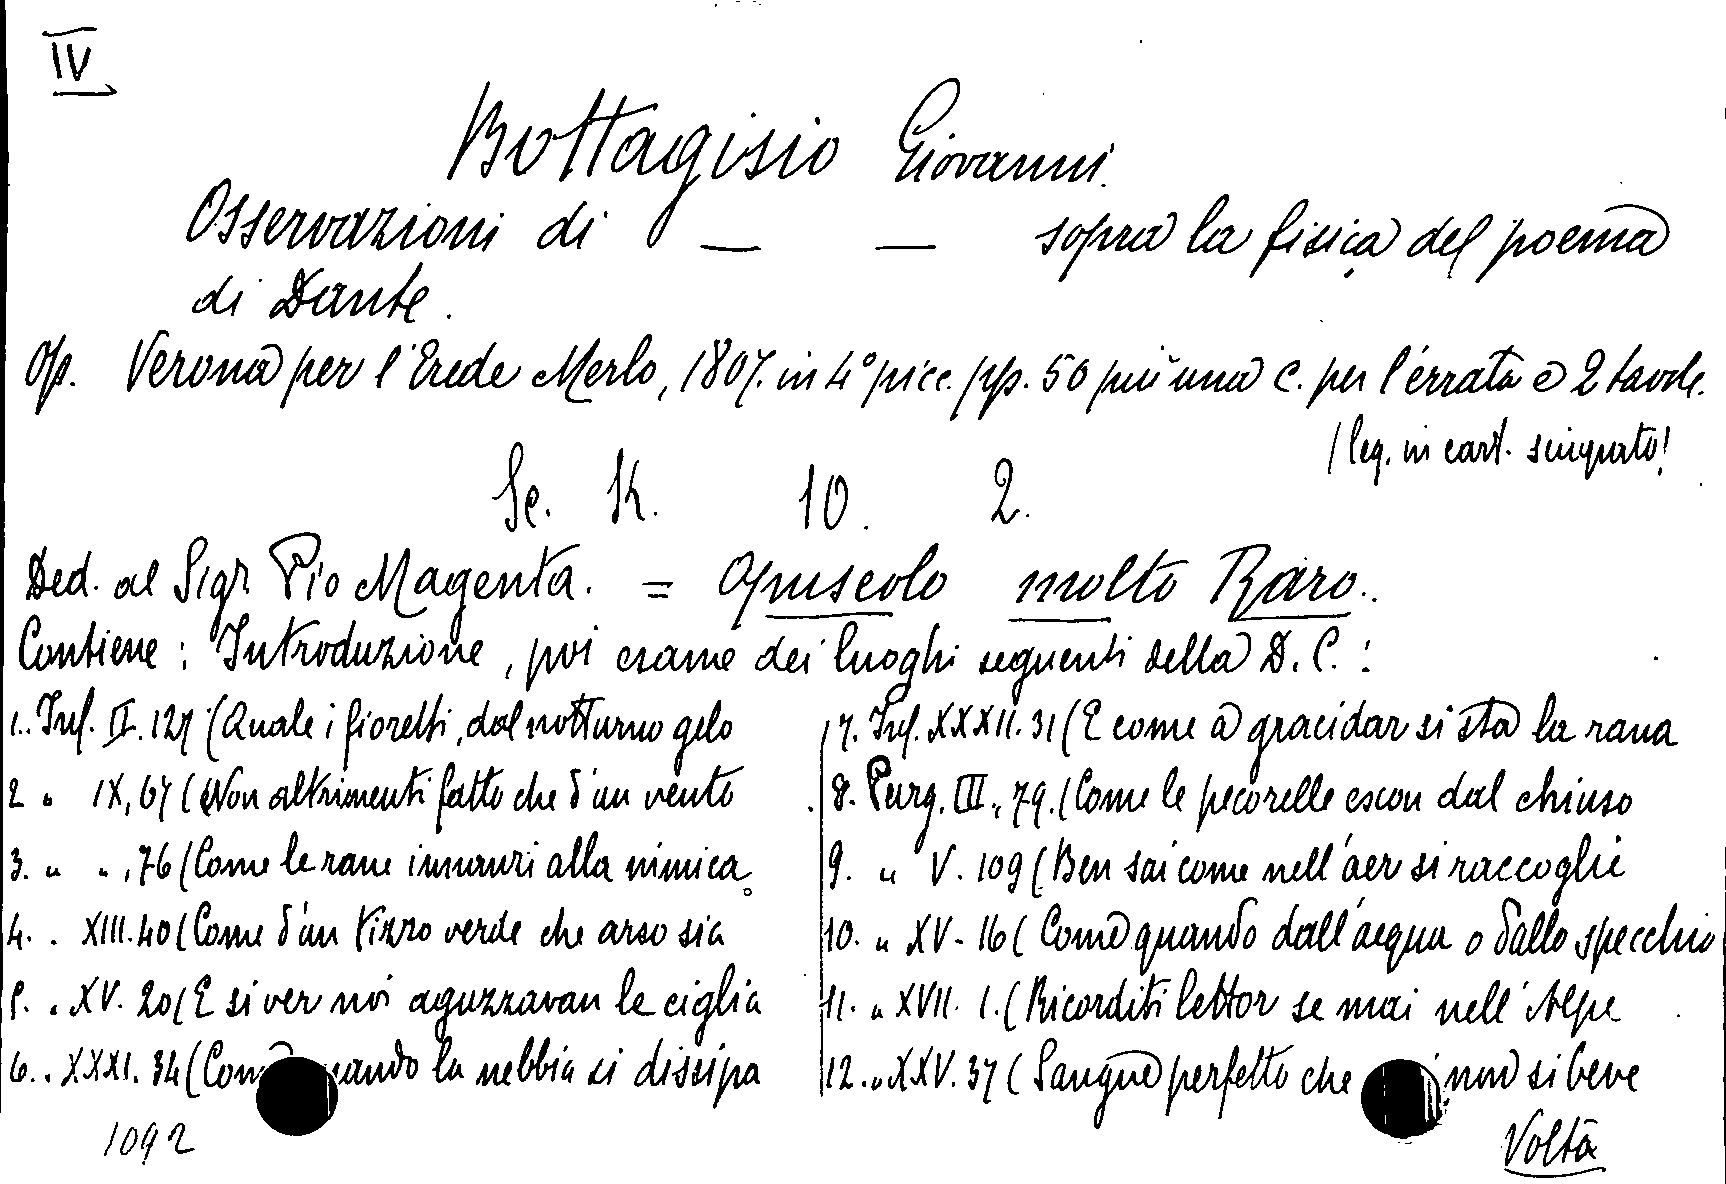 IV
Bottagisio Giovanni.
Osservazioni di — — sopra la fisica del poema
di Dante.
Op. Verona per l'Erede Merlo, 1807. in 4° picc. pp. 50 più una c. per l'errata e 2 tavole.
(leg. in cart. sciupato!
Sc. K. 10. 2.
Ded. al Sigr. Pio Magenta. = Opuscolo molto Raro..
Contiene: Introduzione, poi esame dei luoghi seguenti della D. C.:
1.. Inf. II. 127 (Quale i fioretti, dal notturno gelo
2 " IX, 67 (Non altrimenti fatto che d'un vento
3. " ", 76 (Come le rane innanzi alla nimica
4. . XIII. 40 (Come d'un tizzo verde che arso sia
5. . XV. 20 (E si ver noi aguzzavan le ciglia
6. . XXXI. 34 (Come quando la nebbia si dissipa
7. Inf. XXXII. 31 (E come a gracidar si sta la rana
8. Purg. III., 79. (Come le pecorelle escon dal chiuso
9. " V. 109 (Ben sai come nell'aer si raccoglie
10. " XV. 16 (Come quando dall'acqua o dallo specchio
11. " XVII. 1. (Ricorditi lettor se mai nell'Alpe
12. " XXV. 37 (Sangue perfetto che non si beve
1092
Volta